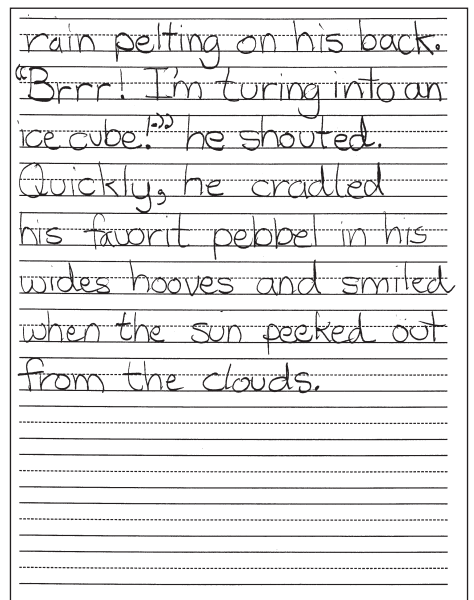 rain pelting on his back.
"Brrr! I'm turing into an
ice cube!" he shouted.
Quickly, he cradled
his favorit pebbel in his
wides hooves and smiled
when the sun peeked out
from the clouds.